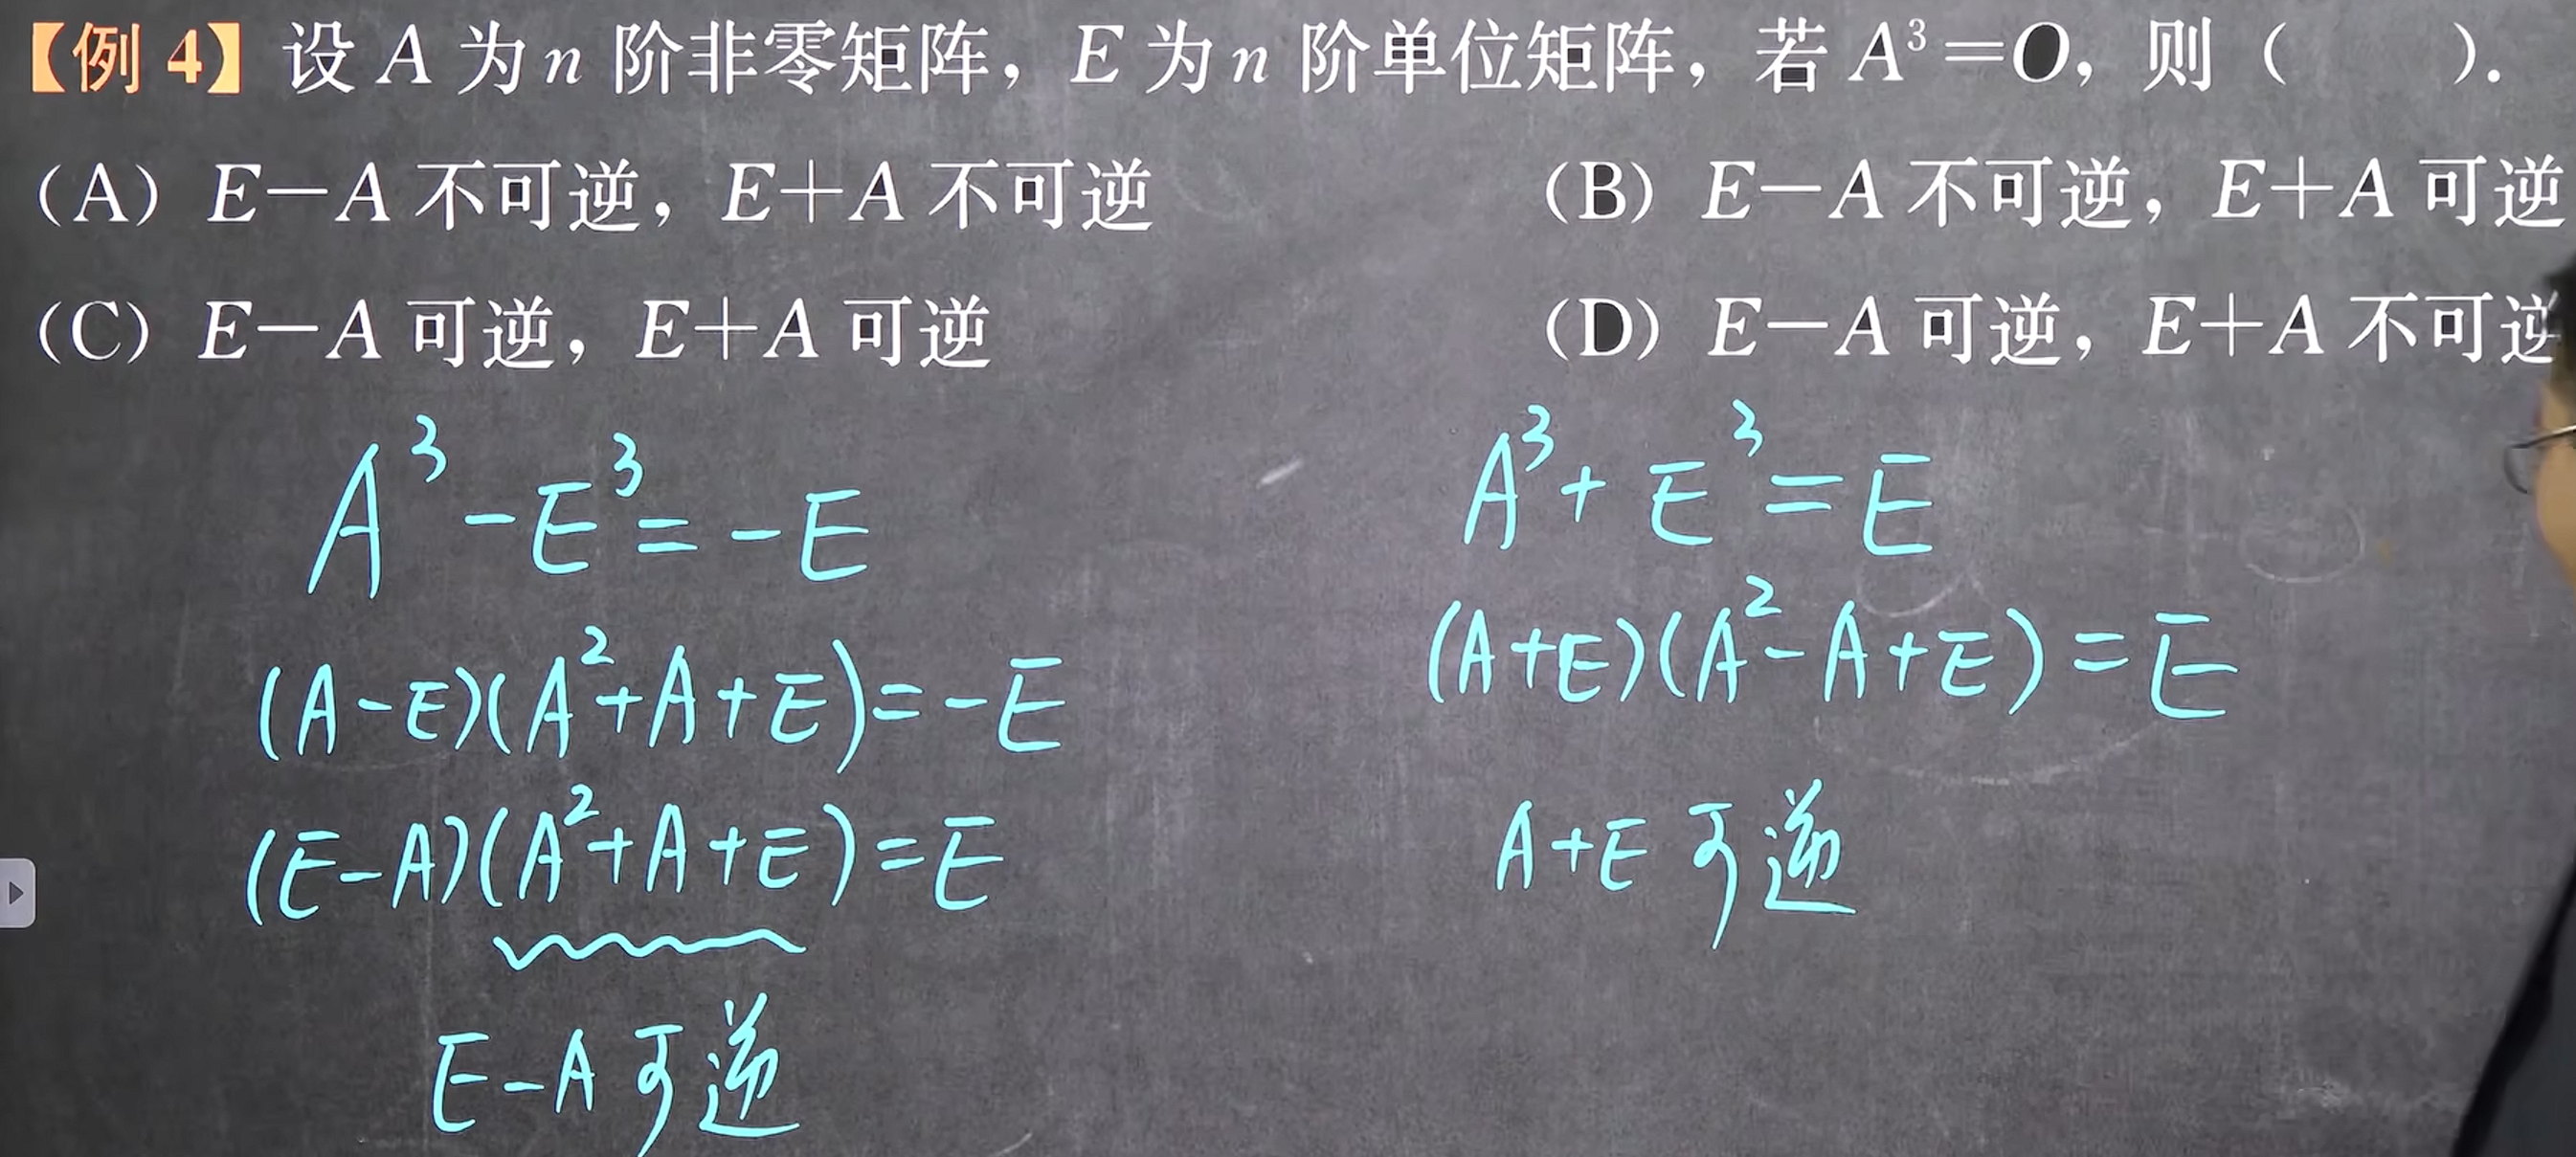 【例 4】设 A 为 n 阶非零矩阵，E 为 n 阶单位矩阵，若 A³=O，则（　　）.
（A）E－A 不可逆，E＋A 不可逆
（B）E－A 不可逆，E＋A 可逆
（C）E－A 可逆，E＋A 可逆
（D）E－A 可逆，E＋A 不可逆
A³－E³＝－E
(A－E)(A²+A+E)＝－E
(E－A)(A²+A+E)＝E
E－A 可逆
A³+E³＝E
(A+E)(A²－A+E)＝E
A+E 可逆